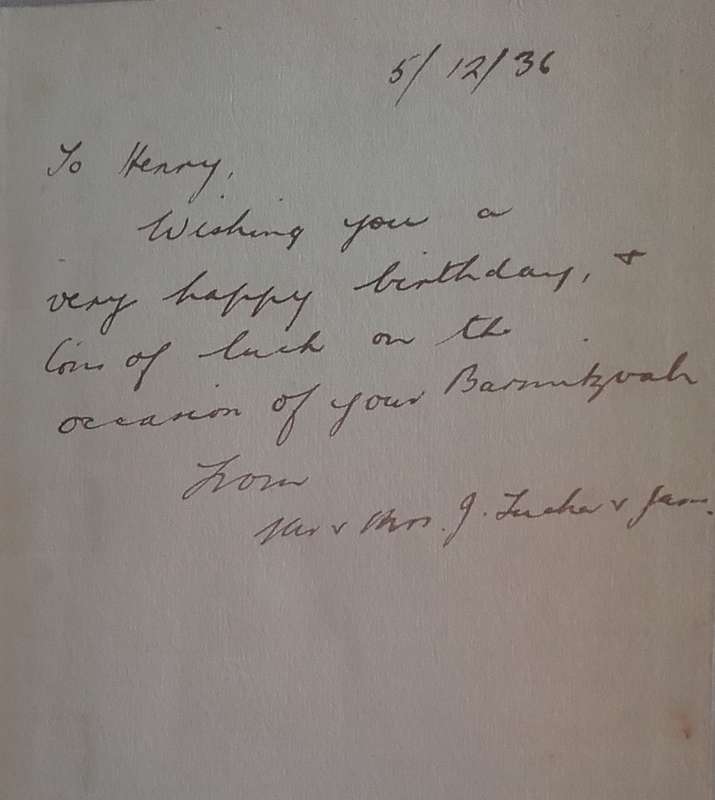 5/12/36
To Henry,
Wishing you a
very happy birthday, &
of luck on the
occasion of your Barmitzvah
from
Mr & Mrs. J. Tucker &